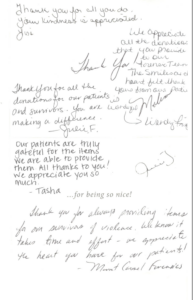 Thank you for all you do.
Your kindness is appreciated.
We appreciate
all the donations
that you provide
to our
Thank You
Thank you for all the
donations for our patients
and survivors. You are
making a difference.
- Julie F.
Our patients are truly
grateful for the items
we are able to provide
them. All thanks to you!
We appreciate you so
much.
- Tasha
...for being so nice!
Thank you for always providing items
for our survivors of violence. We know it
takes time and effort - we appreciate
the heart you have for our patients!
- Mount Carmel Forensics